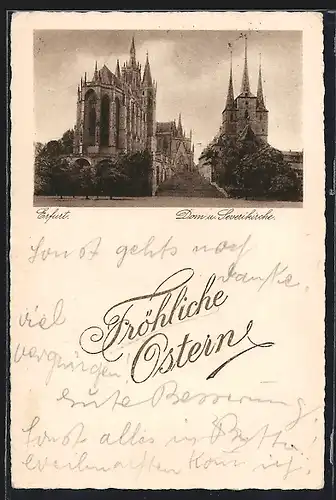 Erfurt. Dom u. Severikirche.
Sonst gehts noch
danke.
Fröhliche
Ostern
viel
vergnügen!
Gute Besserung!
Sonst alles in Butter
weihnachten komm ich!